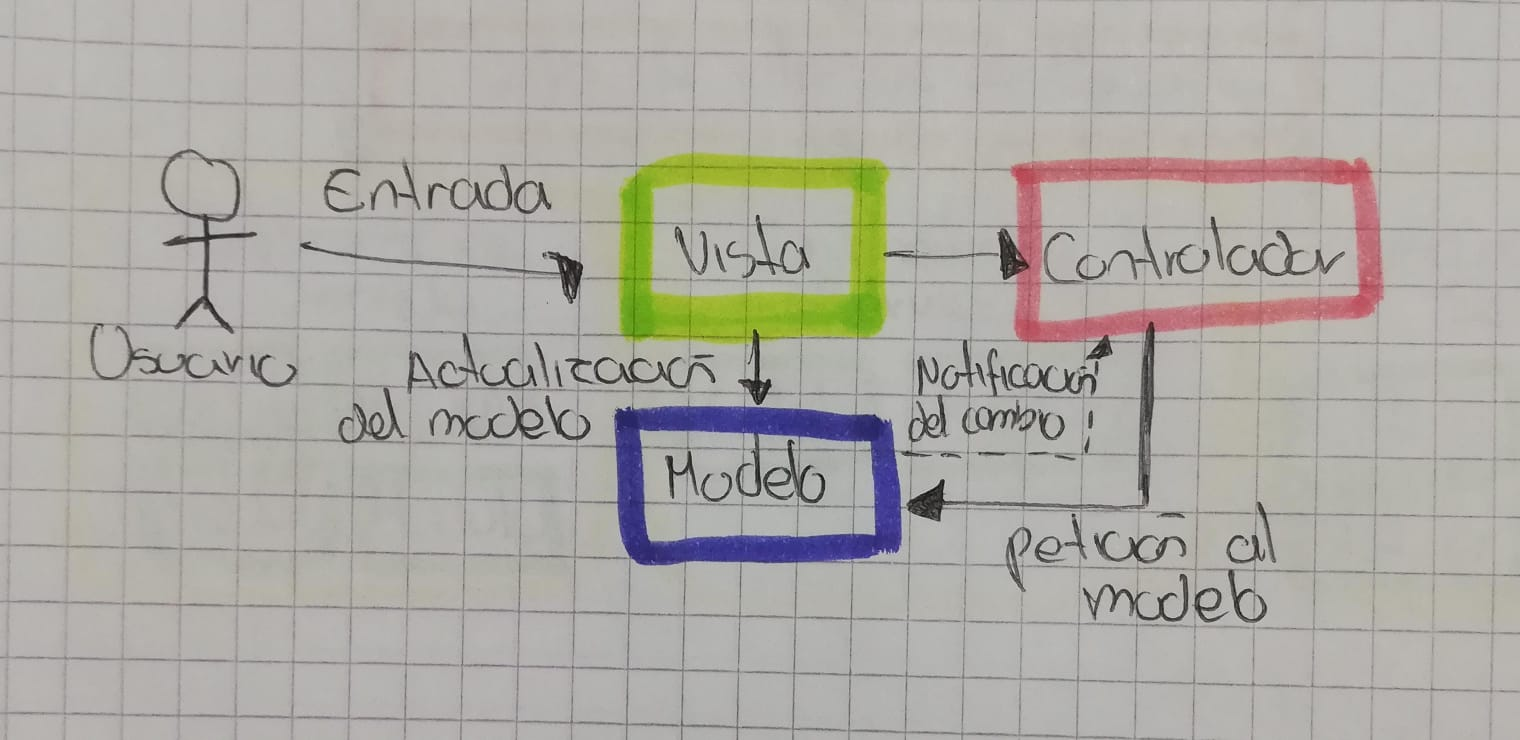 Entrada
Vista
Controlador
Usuario
Actualización
del modelo
Notificación
del cambio
Modelo
petición al
modelo